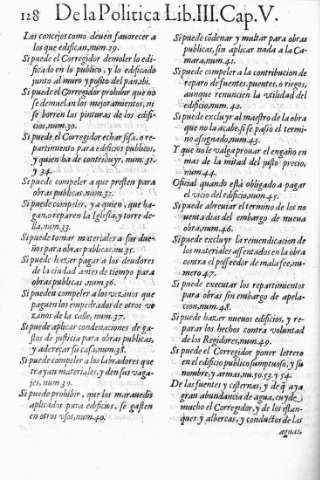 128 De la Politica Lib. III. Cap. V.
Los concejos como deuen fauorecer a
los que edifican, num. 29.
Si puede el Corregidor demoler lo edi-
ficado en lo publico, y lo edificado
junto al muro y posito del pan ibi.
Si puede el Corregidor prohibir que no
se demuelan los mejoramientos, ni
se borren las pinturas de los edifi-
cios, num. 30.
Si puede el Corregidor echar sisa, o re-
partimiento para edificios publicos,
y quien ha de contribuyr, num. 31.
y 34.
Si puede compeler a que presten para
obras publicas, num. 32.
Si puede compeler, y a quien, que ha-
gan, o reparen la Iglesia, y torre de-
lla, num. 33.
Si puede tomar materiales a sus due-
ños para obras publicas, nu. 35.
Si puede hazer pagar a los deudores
de la ciudad antes de tiempo para
obras publicas, num. 36.
Si pueden compeler a los vezinos que
paguen los empedrados de otros ve-
zinos de la calle, num. 37.
Si puede aplicar condenaciones de ga-
stos de justicia para obras publicas,
y adereçar su casa, num. 38.
Si puede compeler a los labradores que
trayan materiales, y den sus vaga-
jes, num. 39.
Si puede prohibir, que los marauedis
aplicados para edificios, se gasten
en otros vsos, num. 40.
Si puede cõdenar y multar para obras
publicas, sin aplicar nada a la Ca-
mara, num. 41.
Si puede compeler a la contribucion de
reparo de fuentes, puentes, o riegos,
aunque renuncien la vtilidad del
edificio, num. 42.
Si puede excluyr al maestro de la obra
que no la acabe, si se passò el termi-
no assignado, num. 43.
Y que no le valga prouar el engaño en
mas de la mitad del justo precio,
num. 44.
Oficial quando està obligado a pagar
el vicio del edificio, num. 45.
Si puede abreuiar el termino de los no
uenta dias del embargo de nueua
obra, num. 46.
Si puede excluyr la reiuendicacion de
los materiales assentados en la obra
contra el possedor de mala fee, nu-
mero 47.
Si puede executar los repartimientos
para obras sin embargo de apela-
cion, num. 48.
Si puede hazer nueuos edificios, y re-
parar los hechos contra voluntad
de los Regidores, num. 49.
Si puede el Corregidor poner letrero
en el edificio publico sumptuoso, y su
nombre, y armas, nu. 50. 53. y 54.
De las fuentes y cisternas, y de q̃ aya
gran abundancia de agua, cuyde
mucho el Corregidor, y de los estan-
ques y albercas, y conductos de las
aguas,